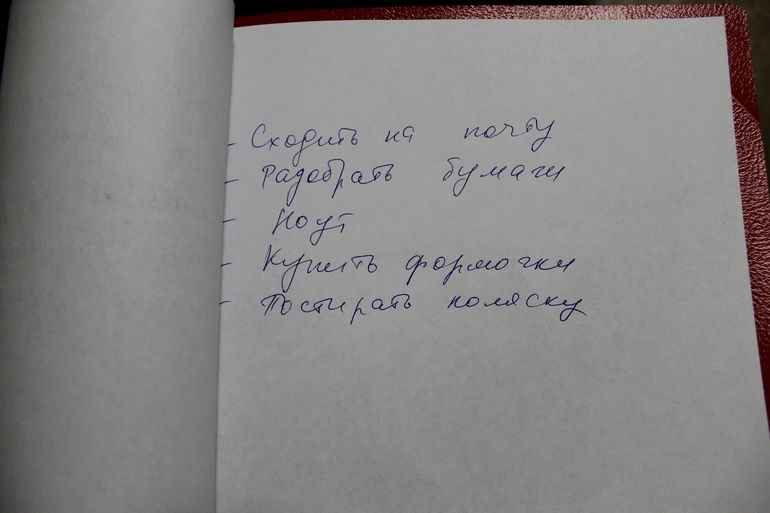 - Сходить на почту
- Радобрать бумаги
- Ноут
- Купить формочки
- Постирать коляску